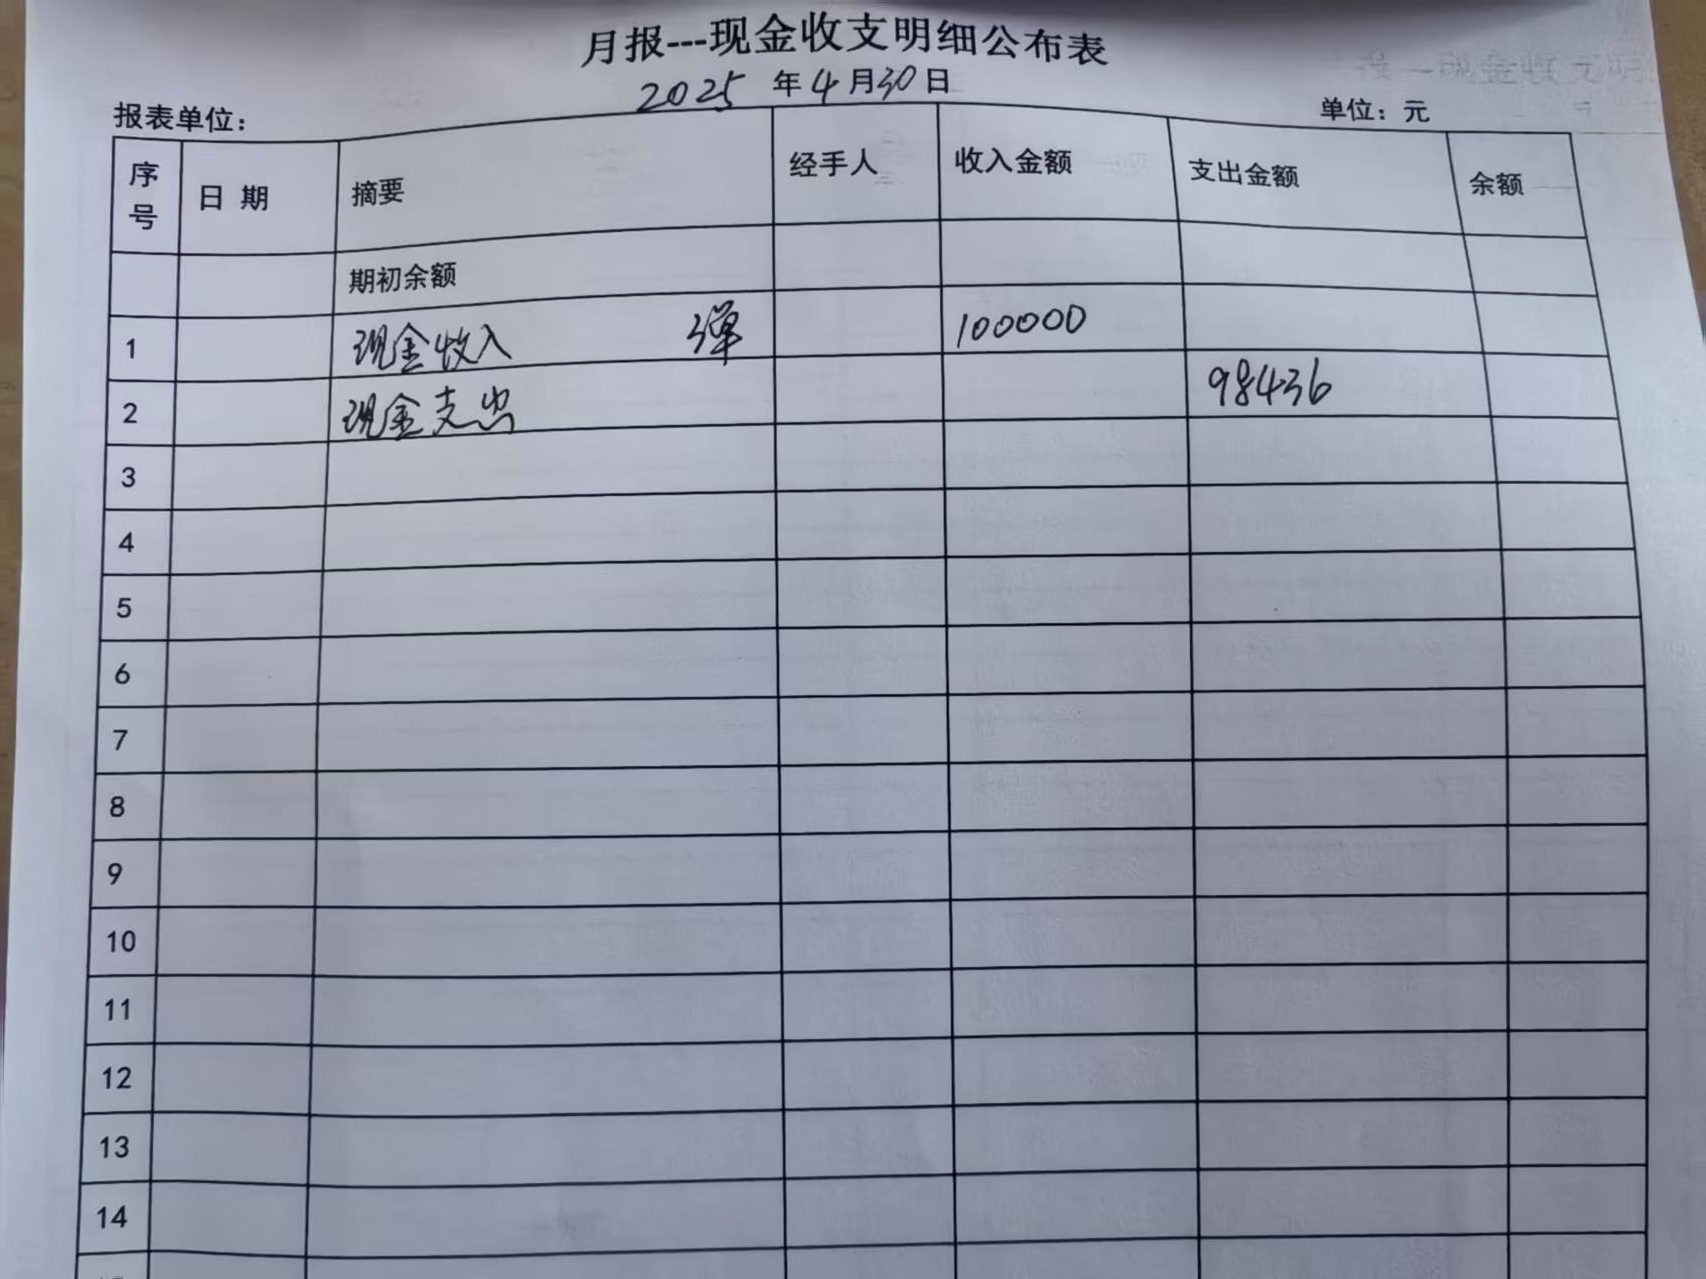 月报---现金收支明细公布表
2025 年 4 月 30 日
报表单位： 单位：元
序号 日 期 摘要 经手人 收入金额 支出金额 余额
期初余额
1 现金收入 弹 100000
2 现金支出 98436
3
4
5
6
7
8
9
10
11
12
13
14